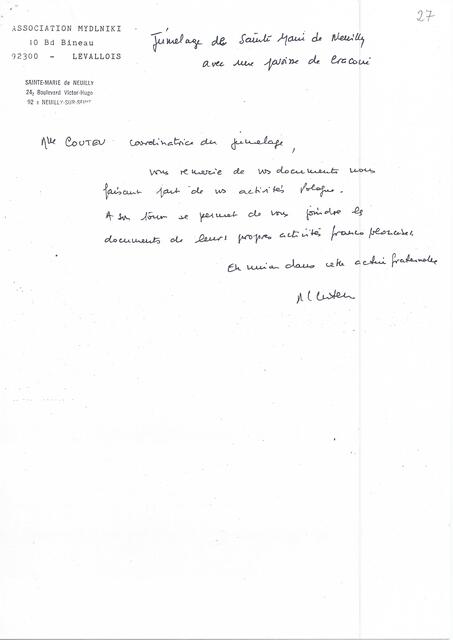 27
ASSOCIATION MYDLNIKI
10 Bd Bineau
92300 - LEVALLOIS
SAINTE-MARIE de NEUILLY
24, Boulevard Victor-Hugo
92 NEUILLY-SUR-SEINE
Jumelage de Sainte Marie de Neuilly
avec une paroisse de Cracovie
Mme COUTEU coordinatrice du jumelage,
vous remercie de vos documents nous
faisant part de vos activités Pologne.
A son tour se permet de vous joindre les
documents de leurs propres activités franco polonaises.
En union dans cette activité fraternelle